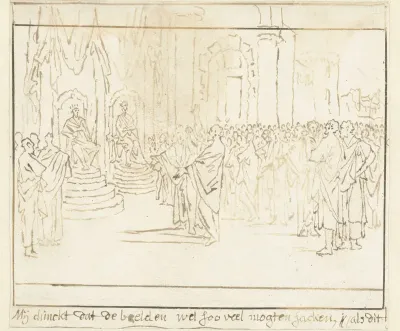 Mij dunckt dat de beelden wel soo veel mogten zacken, als dit